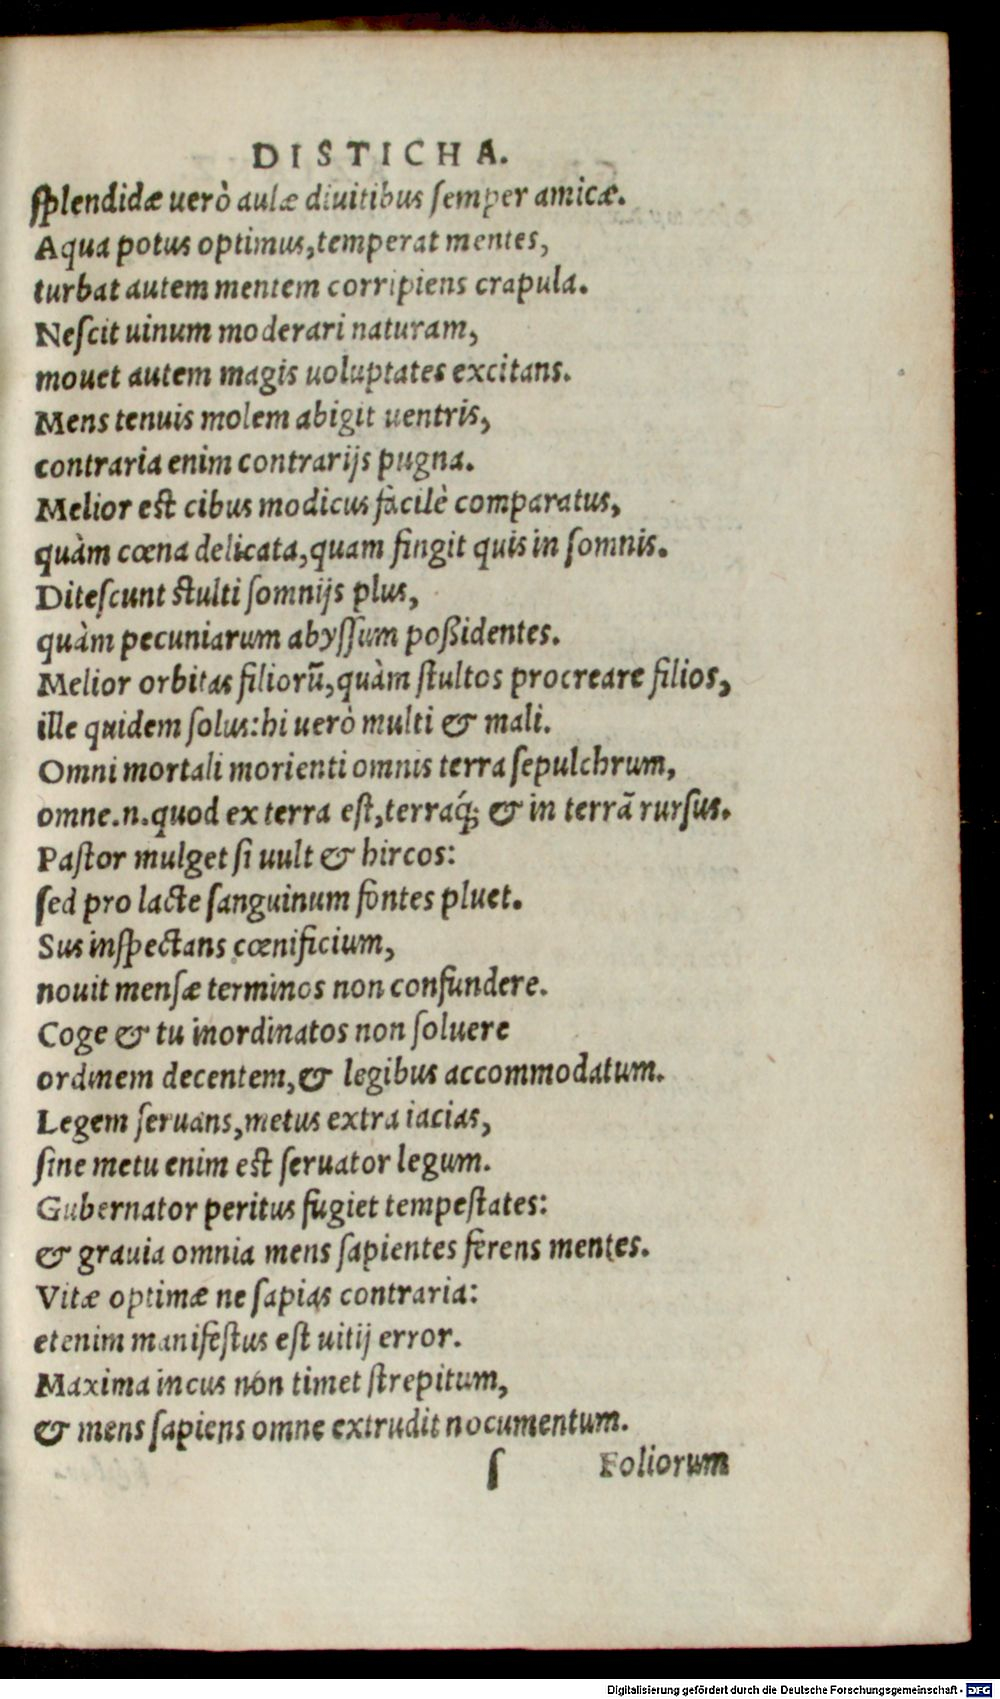 DISTICHA.
ſplendidæ uerò aulæ diuitibus ſemper amicæ.
Aqua potus optimus,temperat mentes,
turbat autem mentem corripiens crapula.
Neſcit uinum moderari naturam,
mouet autem magis uoluptates excitans.
Mens tenuis molem abigit uentris,
contraria enim contrarijs pugna.
Melior est cibus modicus facilè comparatus,
quàm cœna delicata,quam fingit quis in ſomnis.
Diteſcunt stulti ſomnijs plus,
quàm pecuniarum abyſſum poßidentes.
Melior orbitas filiorũ,quàm ſtultos procreare filios,
ille quidem ſolus:hi uerò multi & mali.
Omni mortali morienti omnis terra ſepulchrum,
omne.n.quod ex terra eſt,terraq́; & in terrã rurſus.
Paſtor mulget ſi uult & hircos:
ſed pro lacte ſanguinum fontes pluet.
Sus inſpectans cœnificium,
nouit menſæ terminos non confundere.
Coge & tu inordinatos non ſoluere
ordinem decentem,& legibus accommodatum.
Legem ſeruans,metus extra iacias,
ſine metu enim est ſeruator legum.
Gubernator peritus fugiet tempeſtates:
& grauia omnia mens ſapientes ferens mentes.
Vitæ optimæ ne ſapias contraria:
etenim manifeſtus eſt uitij error.
Maxima incus non timet ſtrepitum,
& mens ſapiens omne extrudit nocumentum.
ſ Foliorum
Digitalisierung gefördert durch die Deutsche Forschungsgemeinschaft - DFG